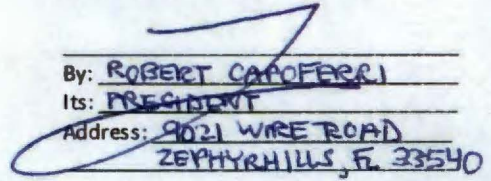 By: ROBERT CAPOFERRI
Its: PRESIDENT
Address: 9021 WIRE ROAD
ZEPHYRHILLS, FL 33540